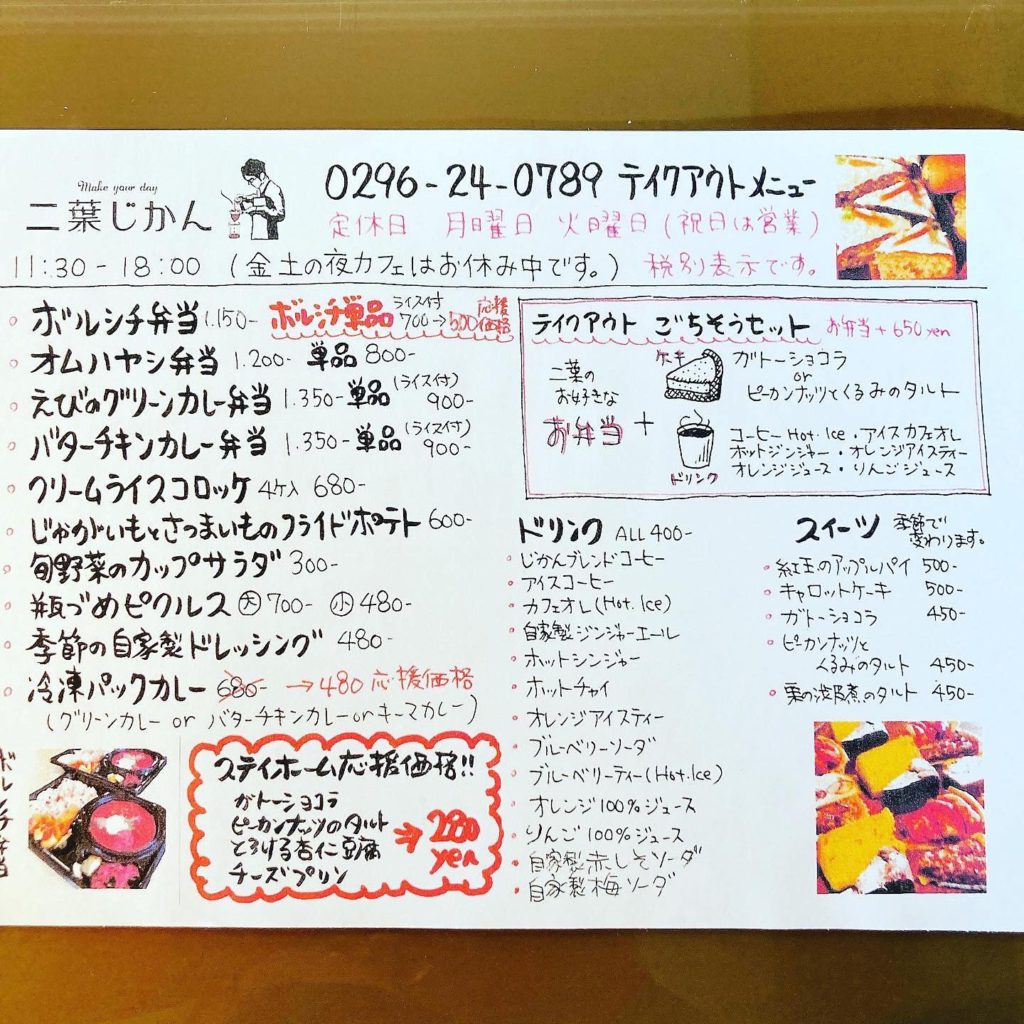 Make your day
二葉じかん
0296-24-0789 テイクアウトメニュー
定休日 月曜日 火曜日 (祝日は営業)
11:30-18:00 (金土の夜カフェはお休み中です。) 税別表示です。
ボルシチ弁当 1.150- ボルシチ単品 ライス付 700→500 応援価格
オムハヤシ弁当 1.200- 単品 800-
えびのグリーンカレー弁当 1.350- 単品 (ライス付) 900-
バターチキンカレー弁当 1.350- 単品 (ライス付) 900-
クリームライスコロッケ 4ケ入 680-
じゃがいもとさつまいものフライドポテト 600-
旬野菜のカップサラダ 300-
瓶づめピクルス 大 700- 小 480-
季節の自家製ドレッシング 480-
冷凍パックカレー 680- →480 応援価格
(グリーンカレー or バターチキンカレー or キーマカレー)
ボルシチ弁当
ステイホーム応援価格!!
ガトーショコラ
ピーカンナッツのタルト
とろける杏仁豆腐
チーズプリン
→280 yen
テイクアウト ごちそうセット お弁当+650yen
二葉の
お好きな
お弁当 +
ケーキ
ガトーショコラ
or
ピーカンナッツとくるみのタルト
ドリンク
コーヒー Hot.Ice・アイスカフェオレ
ホットジンジャー・オレンジアイスティー
オレンジジュース・りんごジュース
ドリンク ALL 400-
じかんブレンドコーヒー
アイスコーヒー
カフェオレ(Hot.Ice)
自家製ジンジャーエール
ホットジンジャー
ホットチャイ
オレンジアイスティー
ブルーベリーソーダ
ブルーベリーティー(Hot.Ice)
オレンジ100%ジュース
りんご100%ジュース
自家製赤しそソーダ
自家製梅ソーダ
スイーツ 季節で変わります。
紅玉のアップルパイ 500-
キャロットケーキ 500-
ガトーショコラ 450-
ピーカンナッツと
くるみのタルト 450-
栗の渋皮煮のタルト 450-